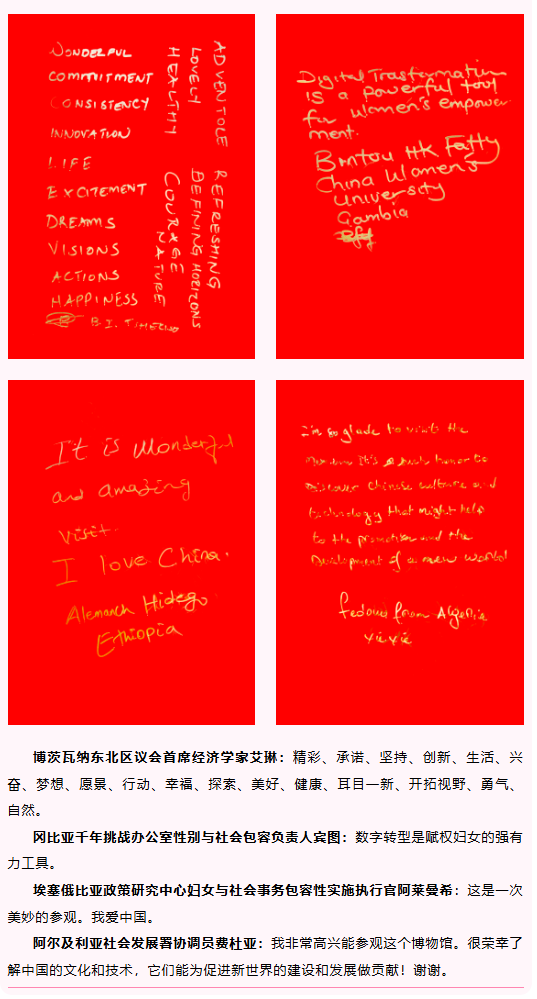 WONDERFUL
COMMITMENT
CONSISTENCY
INNOVATION
LIFE
EXCITEMENT
DREAMS
VISIONS
ACTIONS
HAPPINESS
B.I.
ADVENTOLE
LOVELY
HEALTHY
REFRESHING
DEFINING HORIZONS
COURAGE
NATURE
Digital Trasformation
is a powerful tool
for Women's empower
ment.
Bintou HK Fatty
China Women's
University
Gambia
It is wonderful
and amazing
visit.
I love China.
Alemanch Hidego
Ethiopia
I'm so glade to visits the
It's a such honor to
Discover chinese culture and
technology that might help
to the promotion and the
Development of a new world
fedoua from Algeria
xie xie
博茨瓦纳东北区议会首席经济学家艾琳：精彩、承诺、坚持、创新、生活、兴
奋、梦想、愿景、行动、幸福、探索、美好、健康、耳目一新、开拓视野、勇气、
自然。
冈比亚千年挑战办公室性别与社会包容负责人宾图：数字转型是赋权妇女的强有
力工具。
埃塞俄比亚政策研究中心妇女与社会事务包容性实施执行官阿莱曼希：这是一次
美妙的参观。我爱中国。
阿尔及利亚社会发展署协调员费杜亚：我非常高兴能参观这个博物馆。很荣幸了
解中国的文化和技术，它们能为促进新世界的建设和发展做贡献！谢谢。